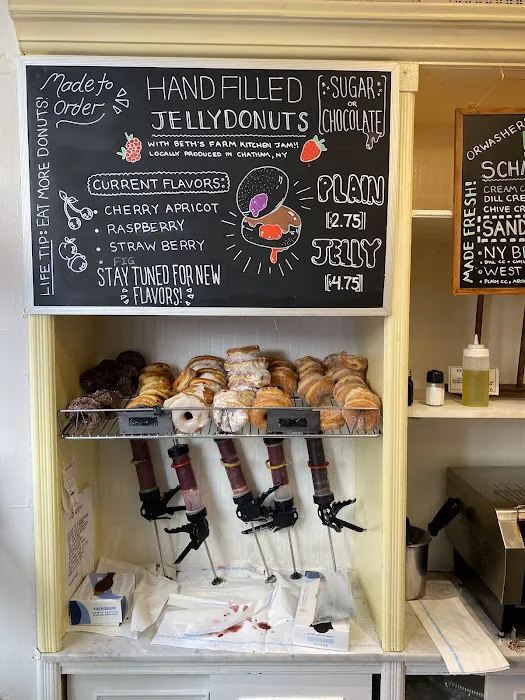 LIFE TIP: EAT MORE DONUTS!
Made to
Order
HAND FILLED
JELLYDONUTS
WITH BETH'S FARM KITCHEN JAM!!
LOCALLY PRODUCED IN CHATHAM, NY
SUGAR
OR
CHOCOLATE
CURRENT FLAVORS:
• CHERRY APRICOT
• RASPBERRY
• STRAW BERRY
• FIG
STAY TUNED FOR NEW
FLAVORS!
PLAIN
[2.75]
JELLY
[4.75]
MADE FRESH!
ORWASHER
SCHM
CREAM C
DILL CRE
CHIVE CR
SAND
• NY B
• WEST